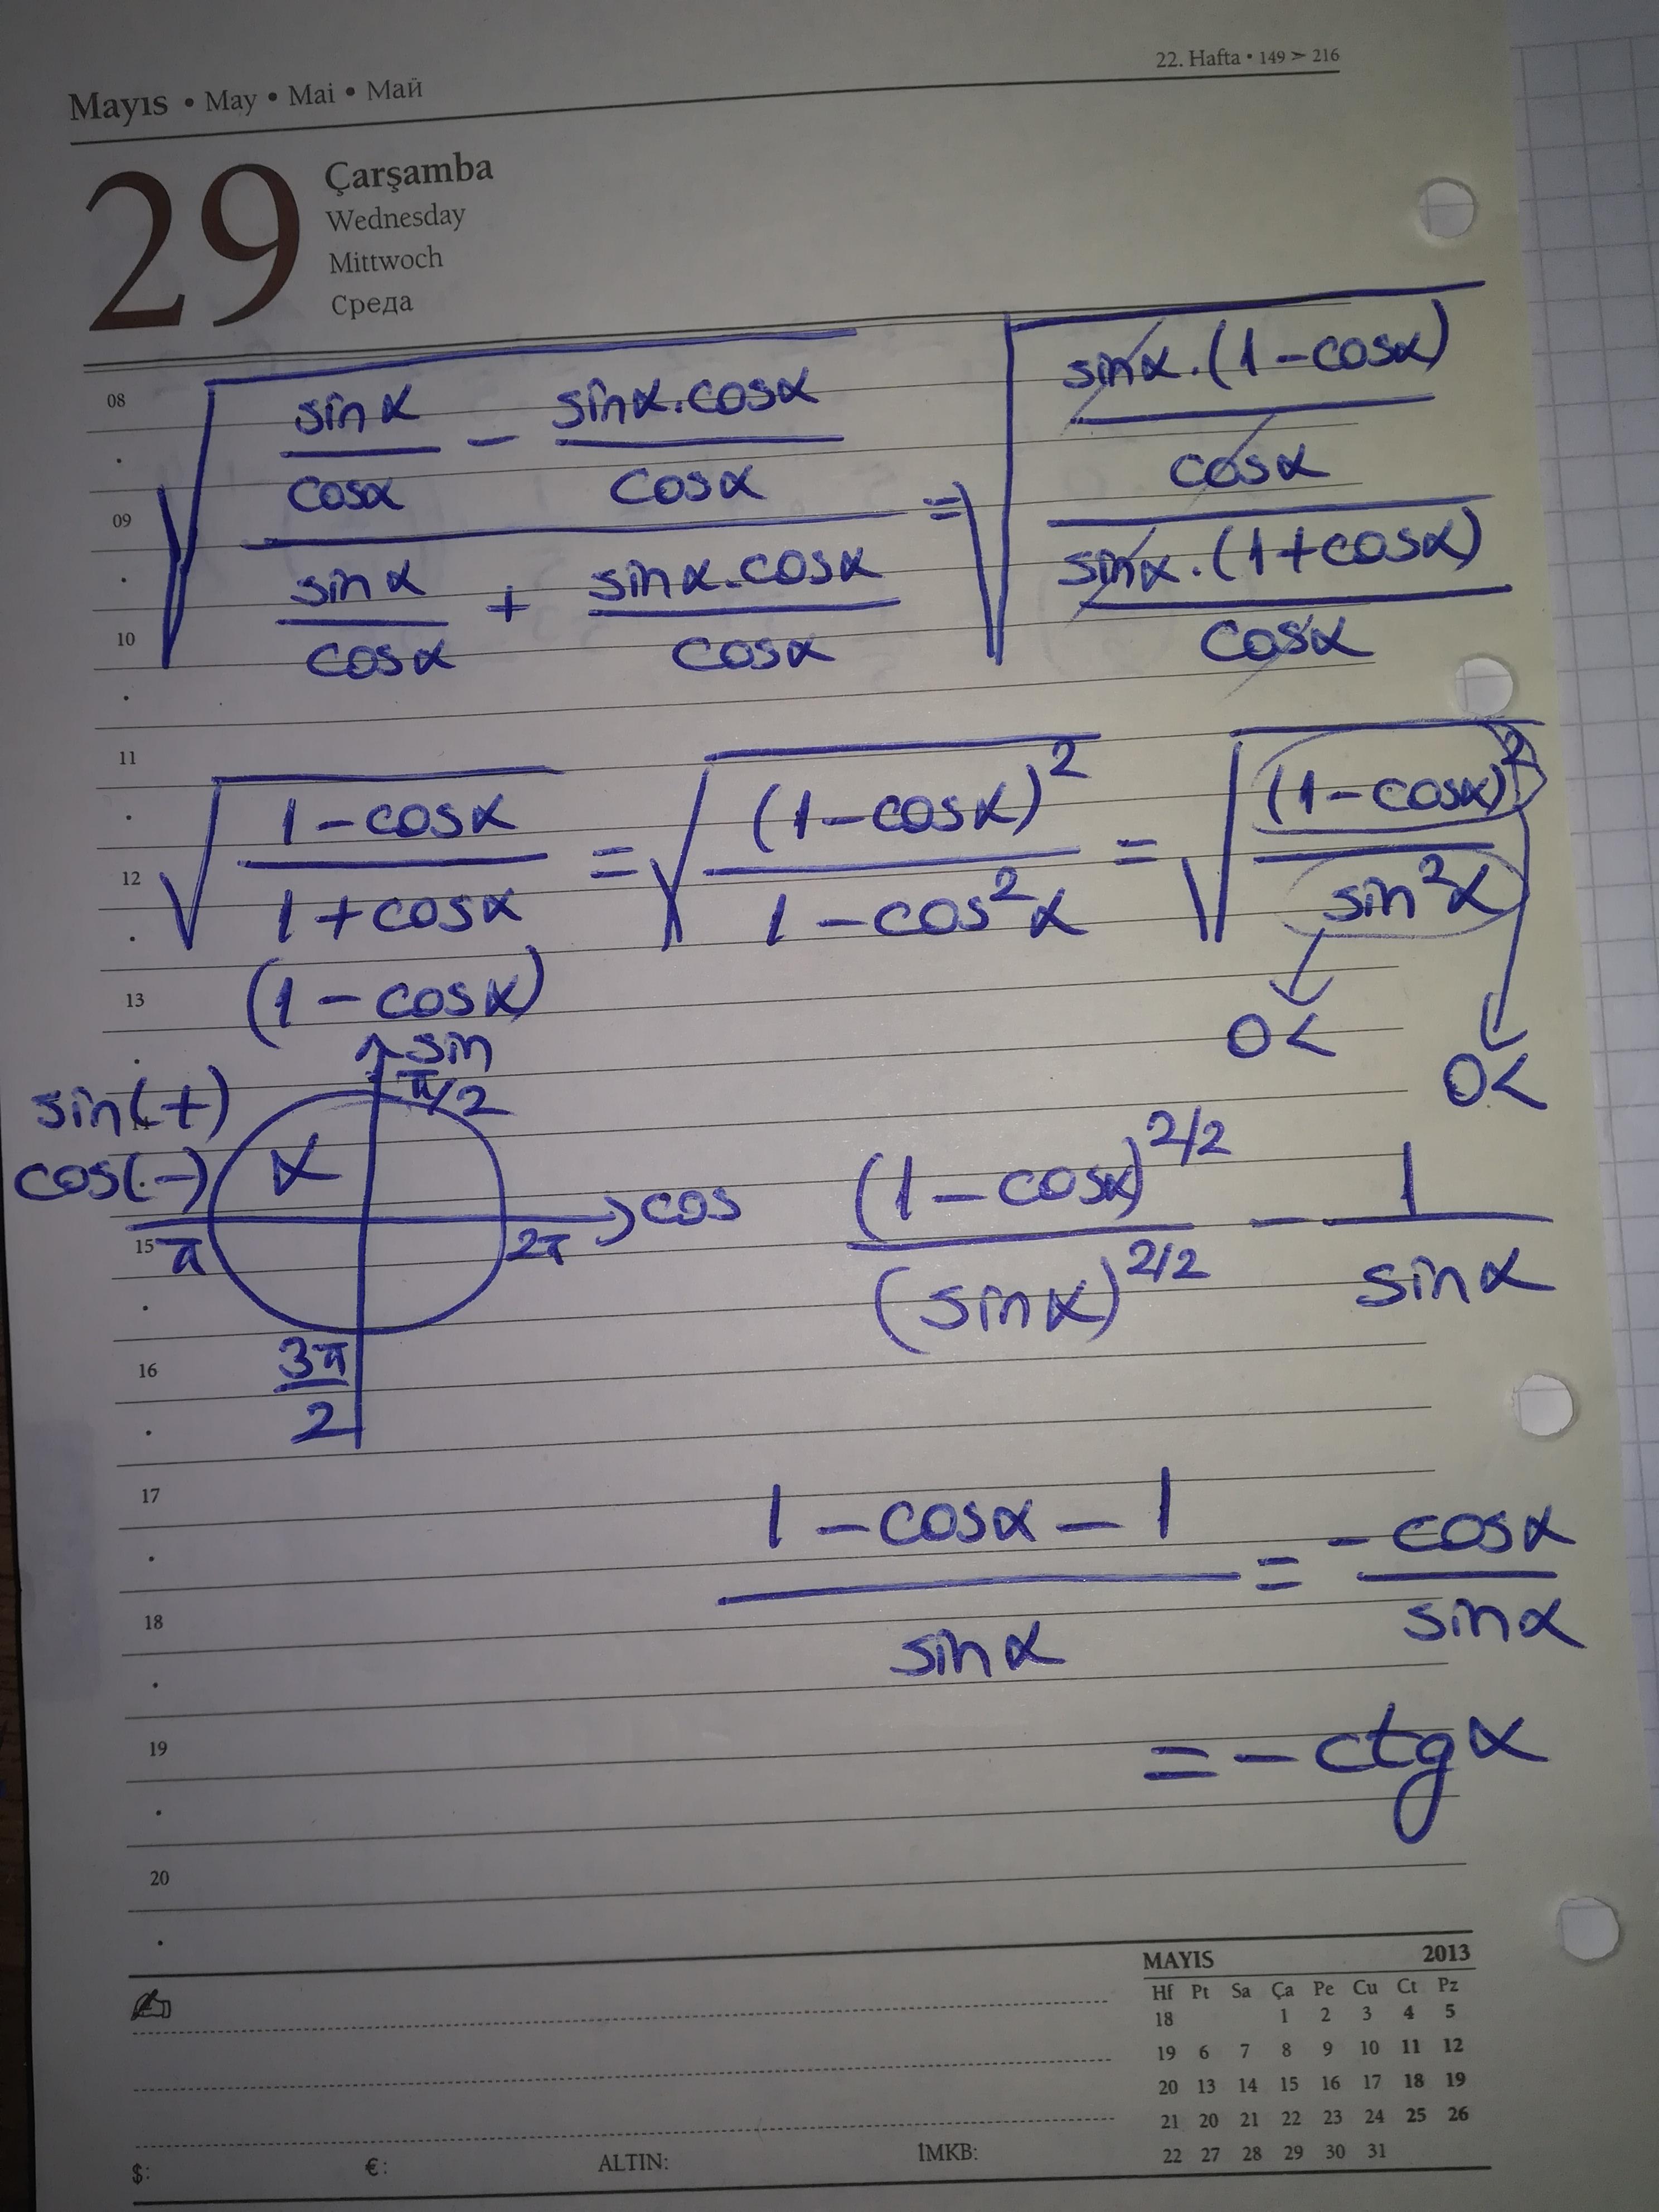 Mayıs • May • Mai • Май
22. Hafta • 149 > 216
29
Çarşamba
Wednesday
Mittwoch
Среда
08
09
10
11
12
13
15
16
17
18
19
20
√(((sinα/cosα) - (sinα.cosα/cosα)) / ((sinα/cosα) + (sinα.cosα/cosα))) = √((sinα.(1-cosα)/cosα) / (sinα.(1+cosα)/cosα))
√((1-cosα)/(1+cosα)) = √((1-cosα)²/(1-cos²α)) = √((1-cosα)²/sin²α)
(1-cosα)
0<
0<
sin
π/2
sin(+)
cos(-)
α
cos
π
2π
3π/2
(1-cosα)^2/2 / (sinα)^2/2 - 1/sinα
(1-cosα-1)/sinα = -cosα/sinα
= -ctgα
MAYIS 2013
Hf Pt Sa Ça Pe Cu Ct Pz
18 1 2 3 4 5
19 6 7 8 9 10 11 12
20 13 14 15 16 17 18 19
21 20 21 22 23 24 25 26
22 27 28 29 30 31
$: €: ALTIN: İMKB: